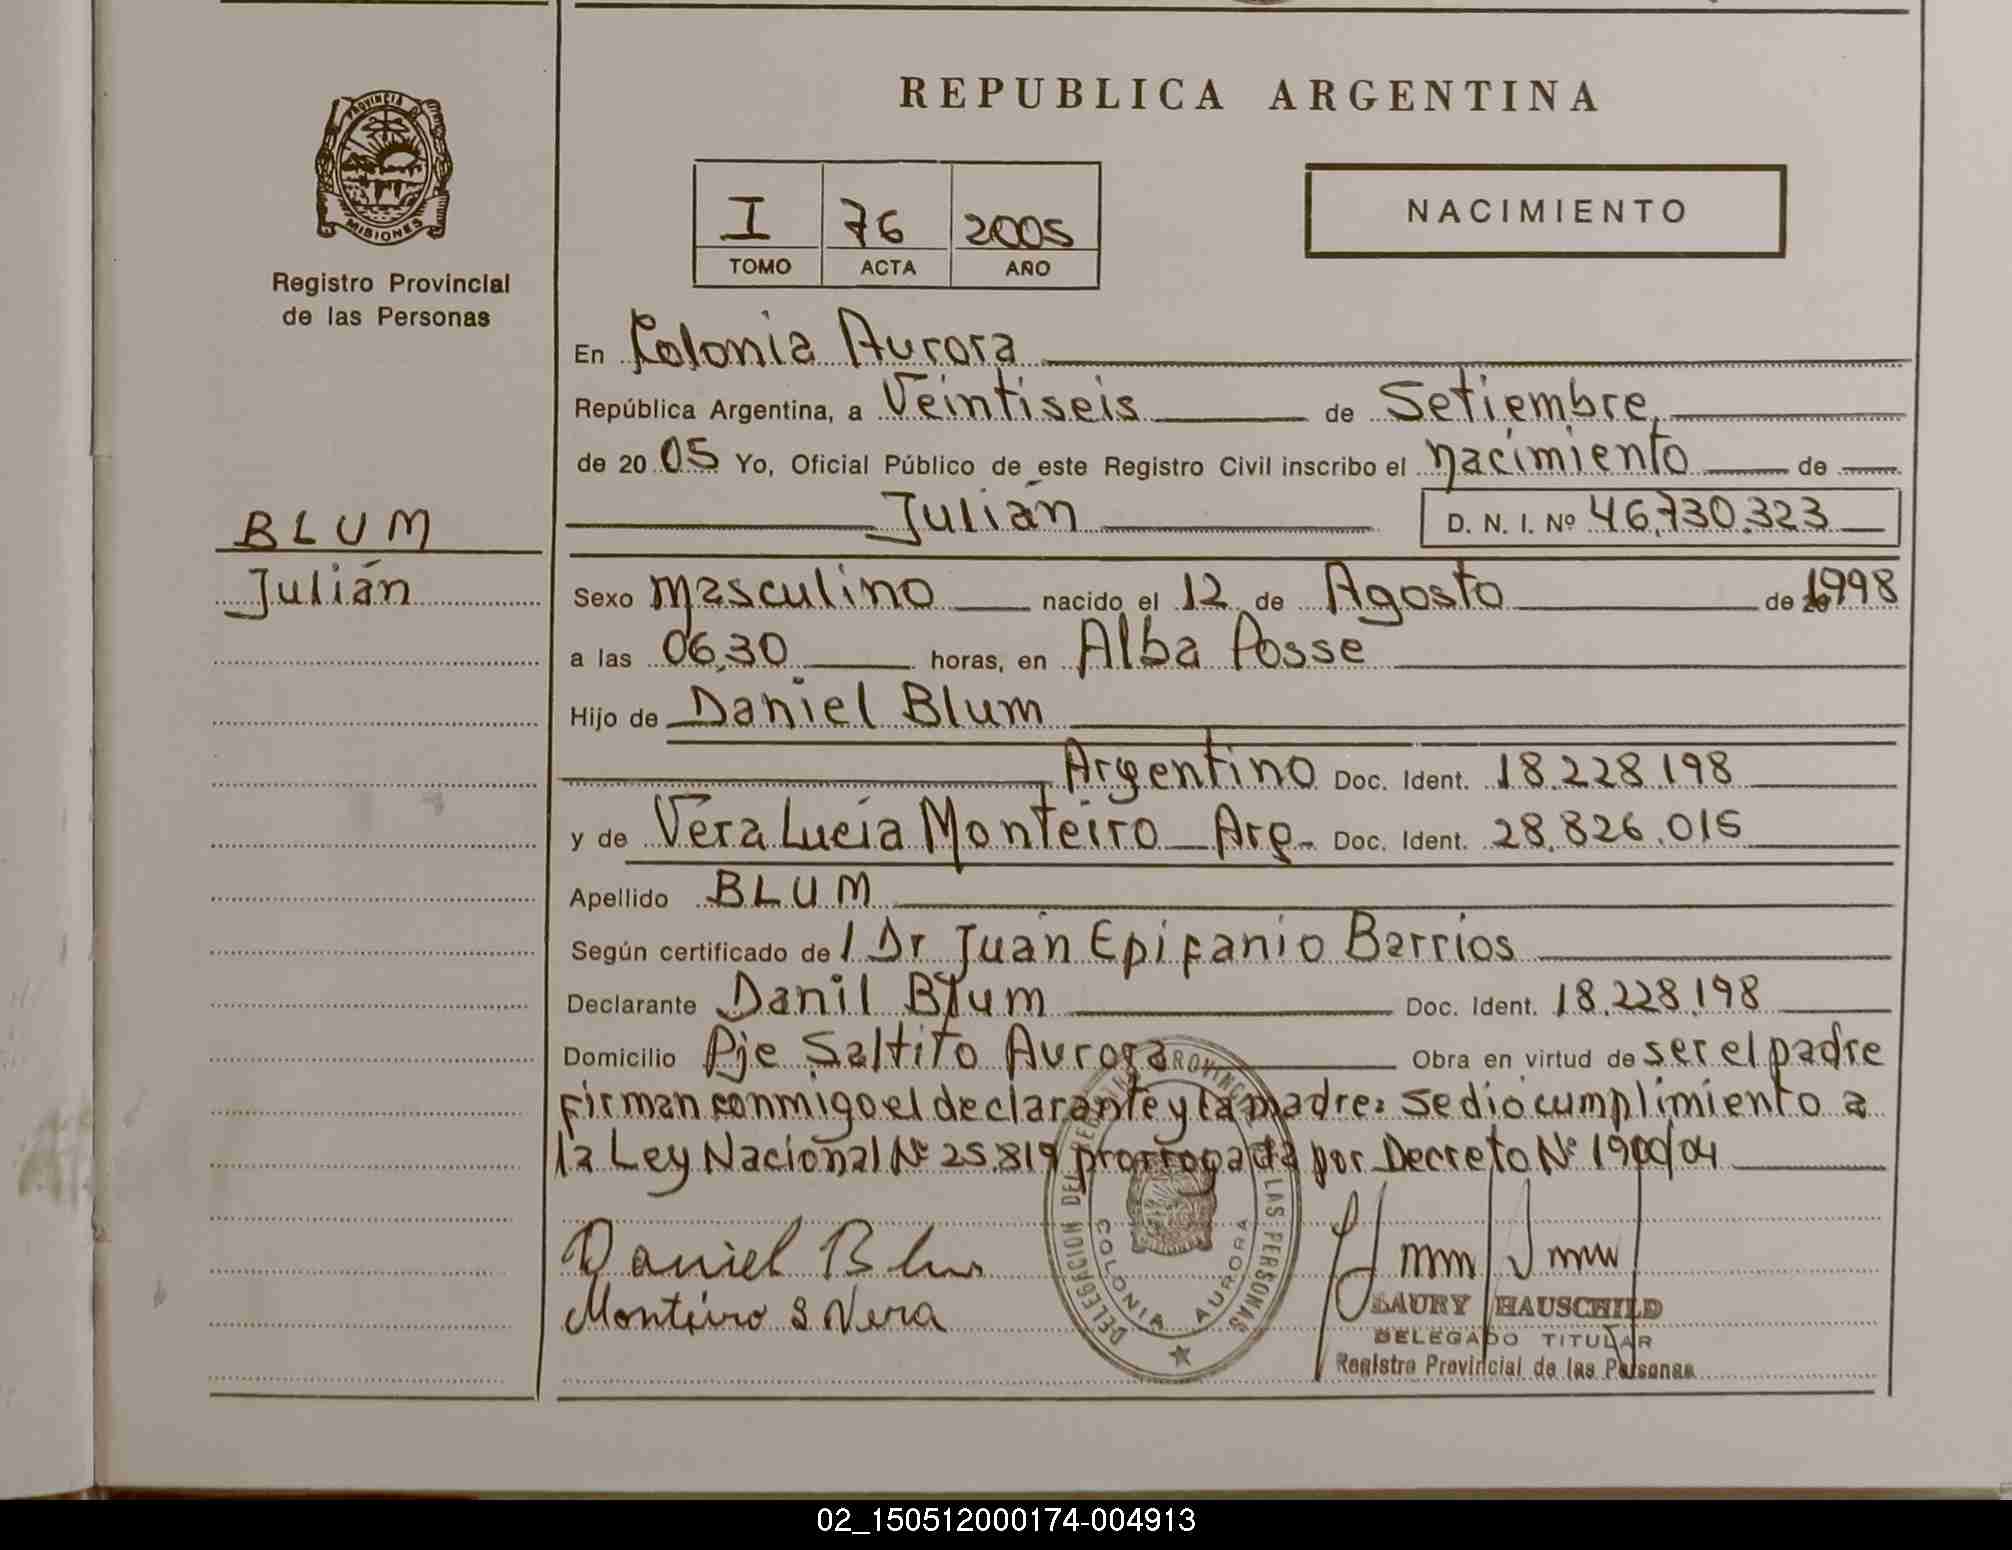 REPUBLICA ARGENTINA
PROVINCIA DE MISIONES
Registro Provincial
de las Personas
I 76 2005
TOMO ACTA AÑO
NACIMIENTO
En Colonia Aurora
República Argentina, a Veintiseis de Setiembre
de 2005 Yo, Oficial Público de este Registro Civil inscribo el nacimiento de
Julián D. N. I. Nº 46.730.323
BLUM
Julián
Sexo masculino nacido el 12 de Agosto de 1998
a las 06,30 horas, en Alba Posse
Hijo de Daniel Blum
Argentino Doc. Ident. 18.228.198
y de Vera Lucia Monteiro Arg. Doc. Ident. 28.826.015
Apellido BLUM
Según certificado de / Dr Juan Epifanio Barrios
Declarante Danil Blum Doc. Ident. 18.228.198
Domicilio Pje Saltito Aurora Obra en virtud de ser el padre
firman conmigo el declarante y la madre: se dio cumplimiento a
la Ley Nacional Nº 25.819 prorrogada por Decreto Nº 1900/04
Daniel Blum
Monteiro S Vera
DELEGACION DEL REGISTRO PROVINCIAL DE LAS PERSONAS
COLONIA AURORA
LAURY HAUSCHILD
DELEGADO TITULAR
Registro Provincial de las Personas
02_150512000174-004913